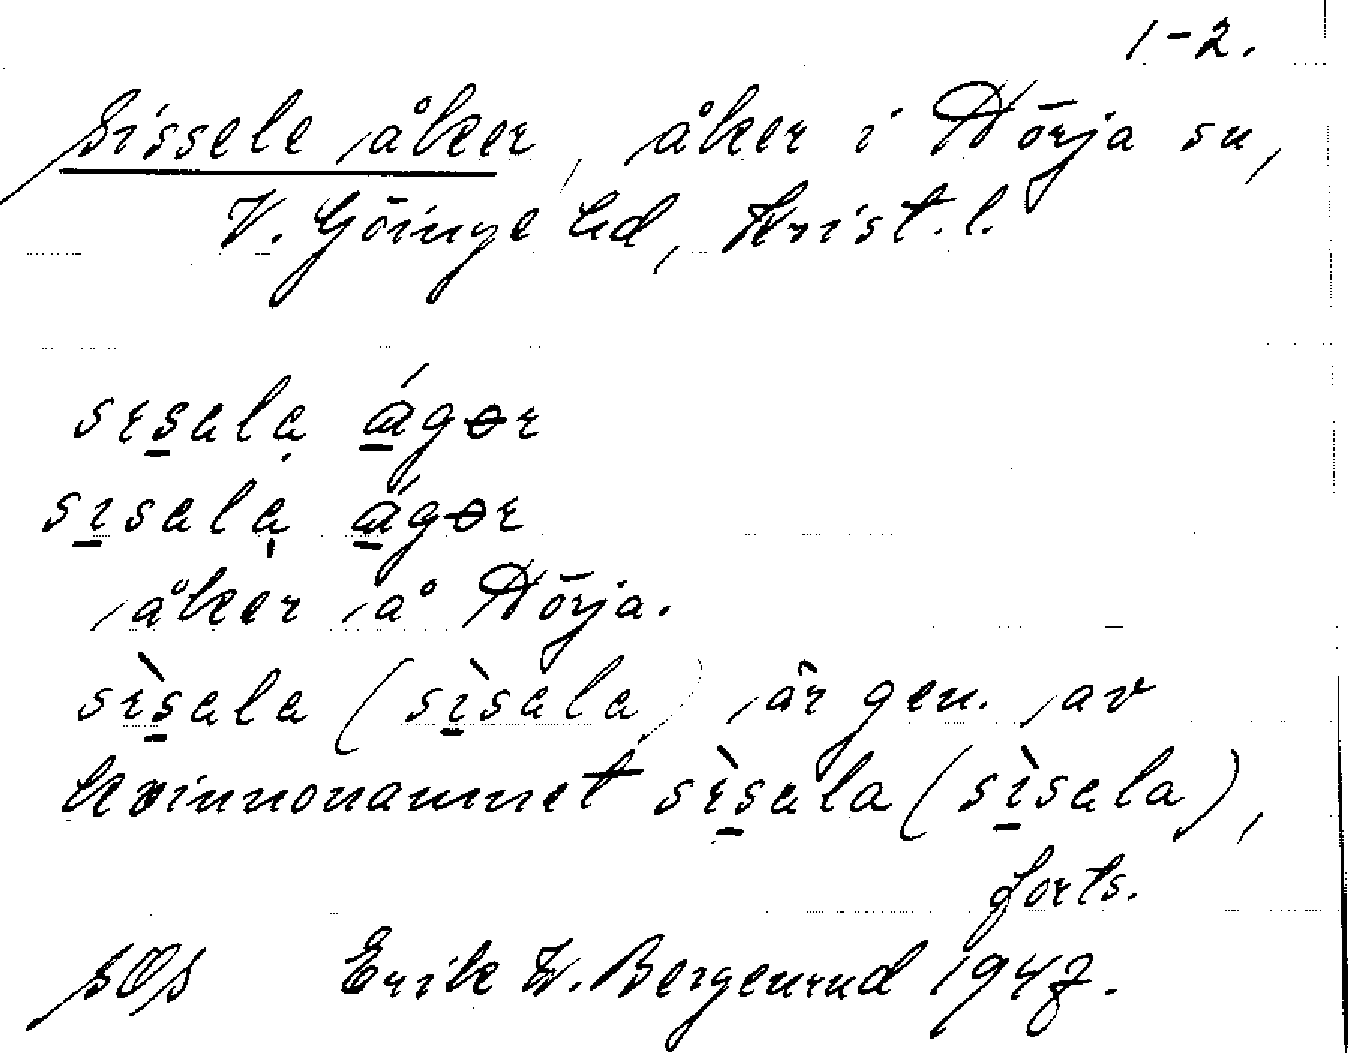 1-2.
Sissele åker, åker i Hörja sn,
V. Göinge hd, Krist. l.
sɛsala ágər
sisala ágər
åker å Hörja.
sɛ̀sala (sìsala) är gen. av
kvinnonamnet sɛ̀sala (sìsala),
forts.
SOS Erik W. Bergenrud 1947.